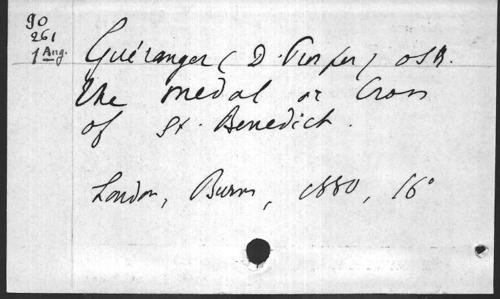 90
261
1 Ang.
Guéranger (D. Prosper) OSB.
The medal or Cross
of St. Benedict.
London, Burns, 1880, 16°